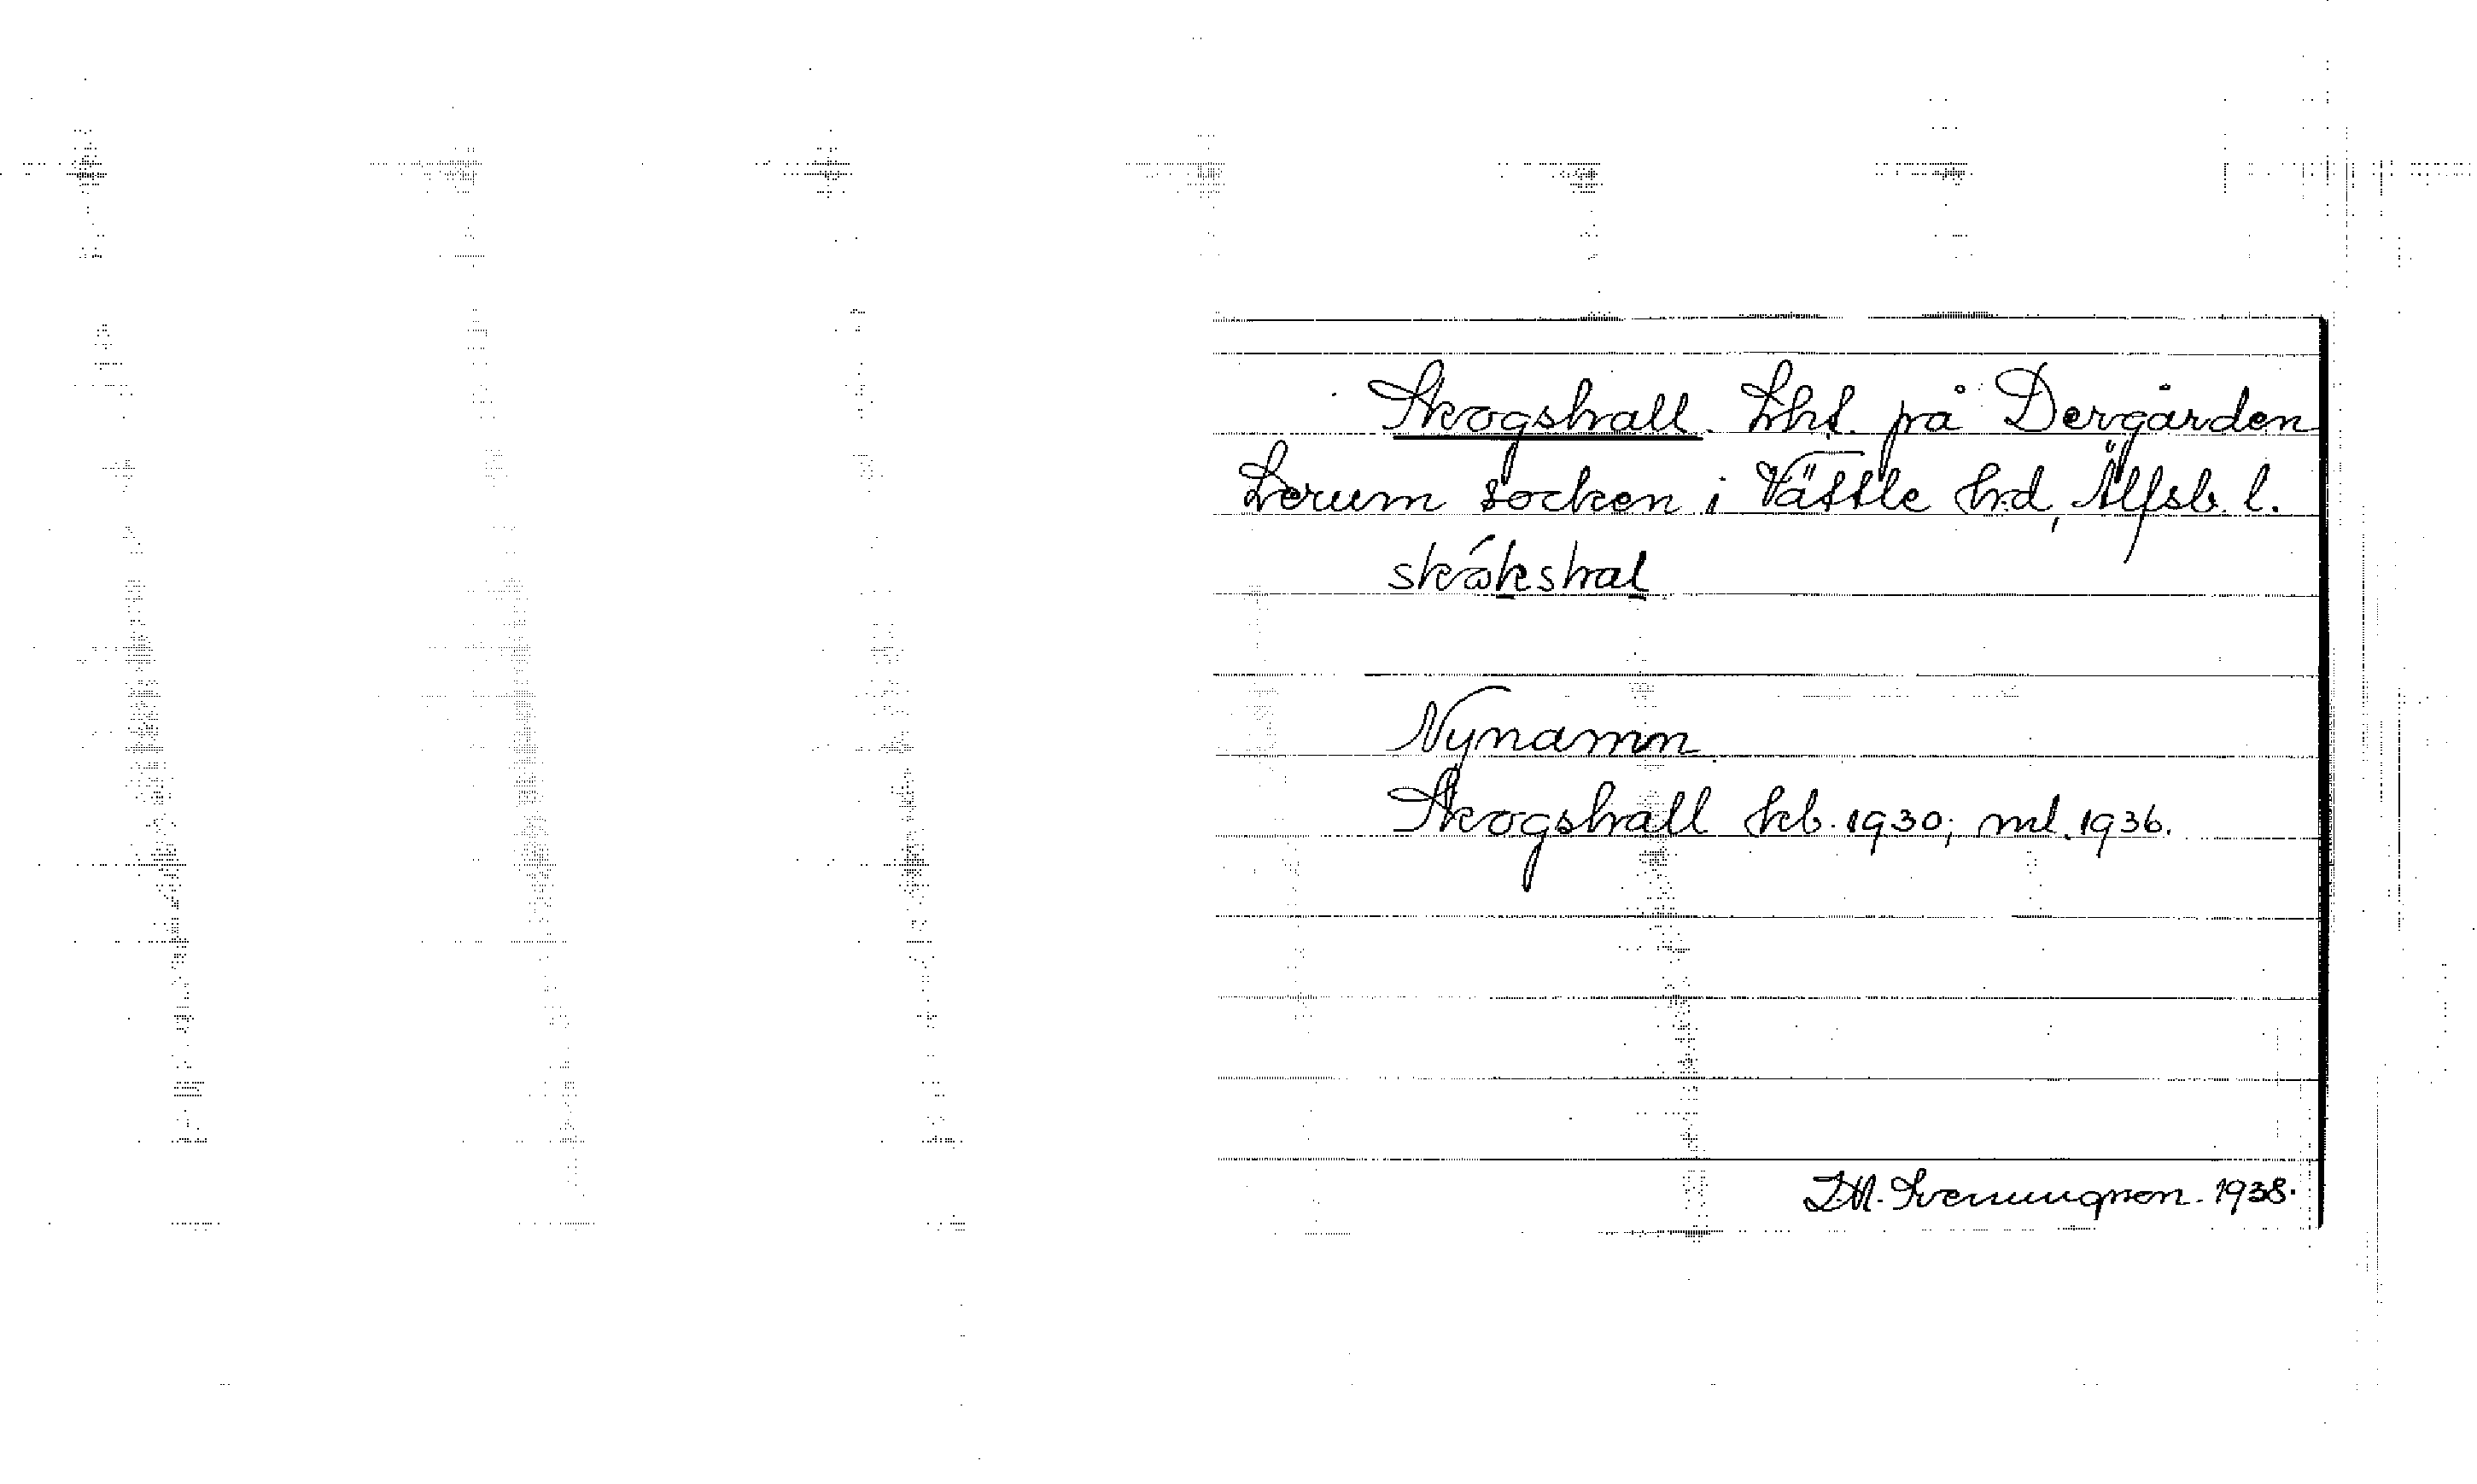 Skogshall. Lht. på Dergården
Lerum socken i Vättle hrd, Älfsb. l.
skåkshal
Nynamn
Skogshall kb. 1930; ml. 1936.
1938.